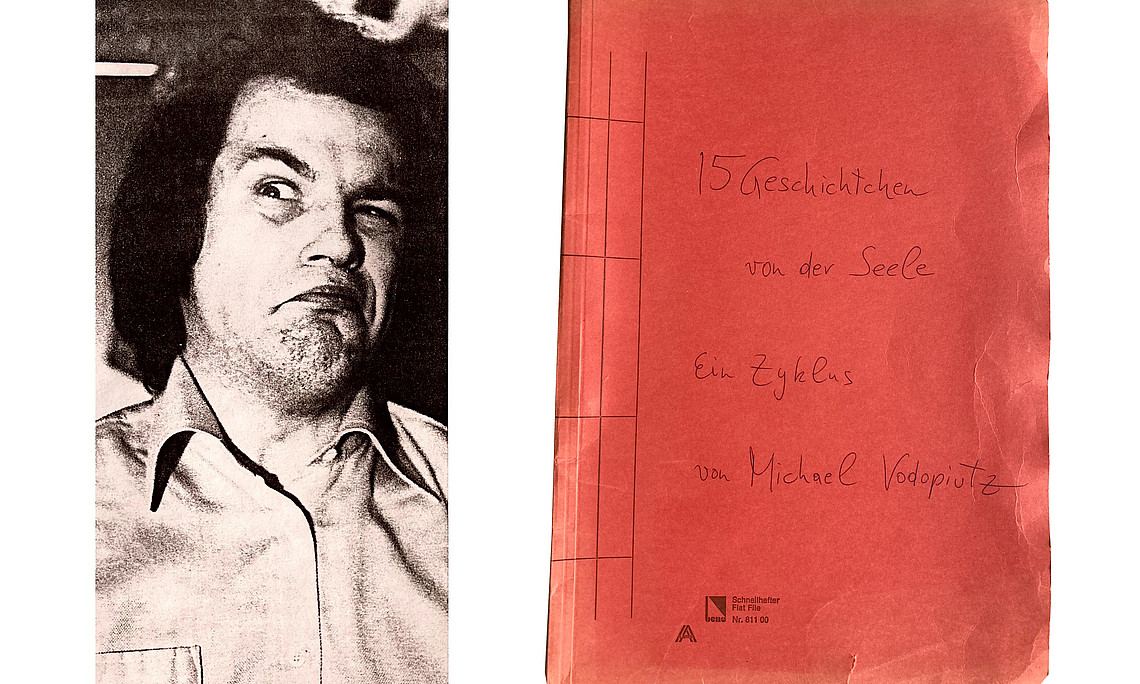 15 Geschichtchen
von der Seele
Ein Zyklus
von Michael Vodopiutz
bene
Schnellhefter
Flat File
Nr. 811 00